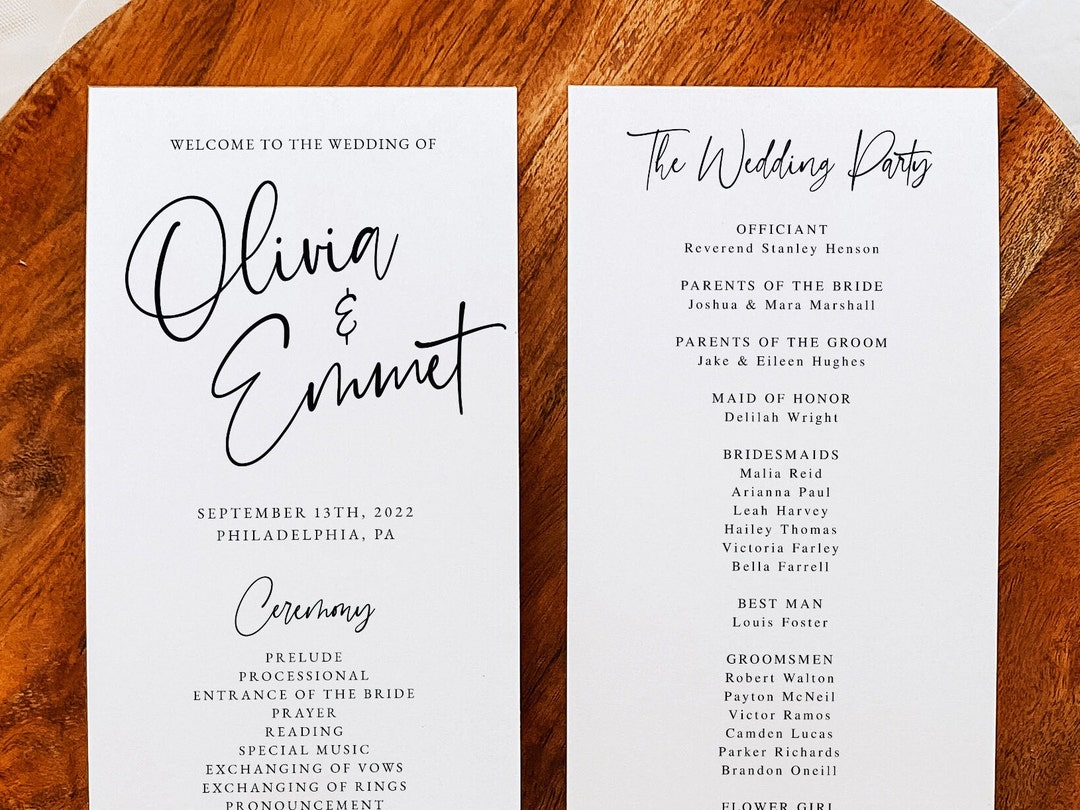 WELCOME TO THE WEDDING OF
Olivia
&
Emmet
SEPTEMBER 13TH, 2022
PHILADELPHIA, PA
Ceremony
PRELUDE
PROCESSIONAL
ENTRANCE OF THE BRIDE
PRAYER
READING
SPECIAL MUSIC
EXCHANGING OF VOWS
EXCHANGING OF RINGS
PRONOUNCEMENT
The Wedding Party
OFFICIANT
Reverend Stanley Henson
PARENTS OF THE BRIDE
Joshua & Mara Marshall
PARENTS OF THE GROOM
Jake & Eileen Hughes
MAID OF HONOR
Delilah Wright
BRIDESMAIDS
Malia Reid
Arianna Paul
Leah Harvey
Hailey Thomas
Victoria Farley
Bella Farrell
BEST MAN
Louis Foster
GROOMSMEN
Robert Walton
Payton McNeil
Victor Ramos
Camden Lucas
Parker Richards
Brandon Oneill
FLOWER GIRL